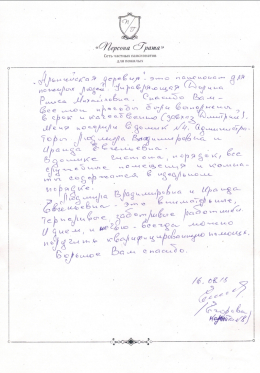 «Персона Грата»
Сеть частных пансионатов
для пожилых
"Альпийская деревня" это пансионат для
пожилых людей. Управляющая
Раиса Михайловна. Спасибо Вам -
все мои просьбы были выполнены
в срок и качественно (завхоз Дмитрий).
Меня поселили в домик №4. Администра-
торы Людмила Владимировна и
Ираида Евгеньевна.
В домике чистота, порядок, все
помещения и комна-
ты содержатся в идеальном
порядке.
Людмила Владимировна и Ираида
Евгеньевна - это внимательные,
терпеливые, заботливые работники
И днем, и ночью - всегда можно
получить квалифицированную помощь.
Большое Вам спасибо.
16.08.15
Егорова